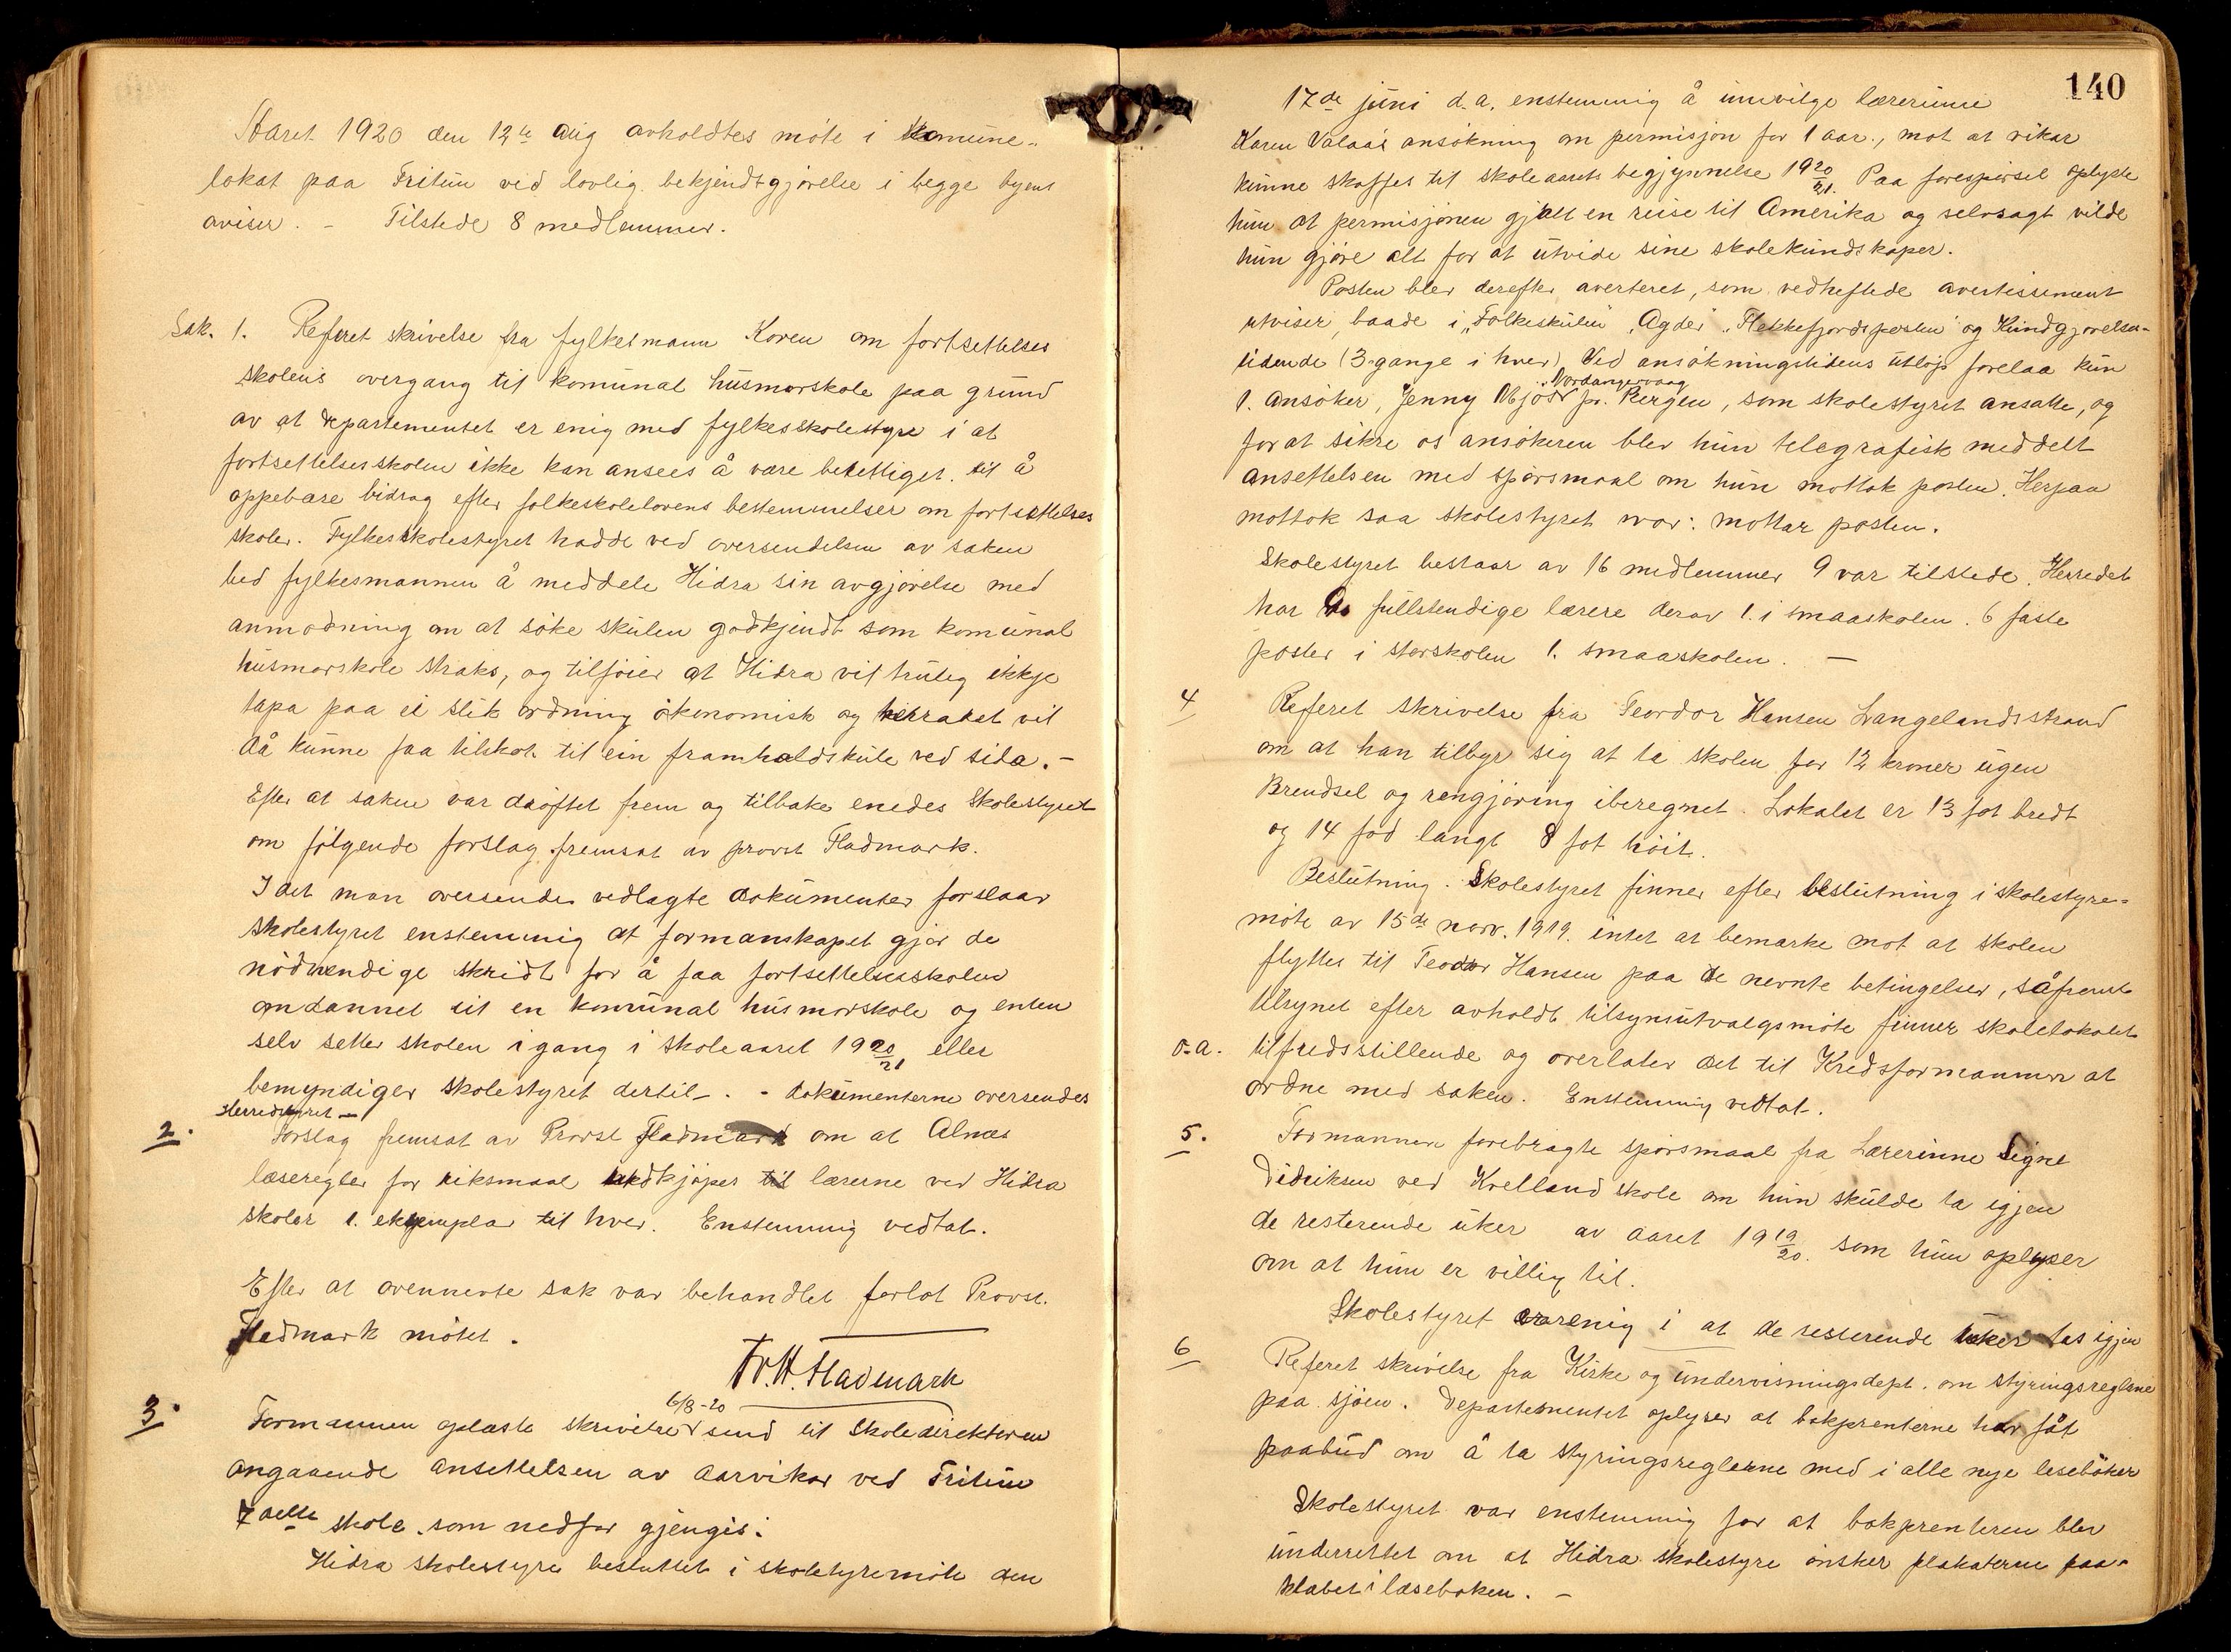 Aaret 1920 den 12te aug avholdtes møte i komune-
lokat paa Fritun ved lovlig bekjendtgjørelse i begge byens
aviser. - Tilstede 8 medlemmer.
Sak. 1. Referet skrivelse fra fylkesmann Koren om fortsettelses
skolens overgang til komunal husmorskole paa grund
av at departementet er enig med fylkesskolestyre i at
fortsettelsesskolen ikke kan ansees å være berettiget til å
oppebære bidrag efter folkeskolelovens bestemmelser om fortsettelses
skoler. Fylkesskolestyret hadde ved oversendelsen av saken
bed fylkesmannen å meddele Hidra sin avgjørelse med
anmodning om at søke skulen godkjendt som komunal
husmorskole straks, og tilføier at Hidra vil truleg ikkje
tapa paa ei slik ordning økonomisk og herradet vil
då kunne faa tilskot til ein framhaldskule ved sida. -
Efter at saken var drøftet frem og tilbake enedes Skolestyret
om følgende forslag fremsat av provst Fladmark.
Idet man oversender vedlagte dokumenter forslaar
skolestyret enstemmig at formanskapet gjør de
nødvendige skridt for å faa fortsettelsesskolen
omdannet til en komunal husmorskole og enten
selv setter skolen igang i skoleaaret 1920/21 eller
bemyndiger skolestyret dertil. - Dokumenterne oversendes
Herredstyret -
2. Forslag fremsat av Provst Fladmark om at Alnæs
læseregler for riksmaal indkjøpes til lærerne ved Hidra
skoler 1. eksemplar til hver. Enstemmig vedtat.
Efter at ovennevte sak var behandlet forlot Provst.
Fladmark møtet.
Fr. H. Fladmark
3. Formannen oplæste skrivelse 6/8-20 send til Skoledirektøren
angaaende ansettelsen av aarvikar ved Fritun
7 delte skole som nedfor gjengis:
Hidra skolestyre besluttet i skolestyremøte den
140
17de juni d.a. enstemmig å innvilge lærerinne
Karen Valaas ansøkning om permisjon for 1 aar., mot at vikar
kunne skaffes til skoleaarets begjynnelse 1920/21. Paa forespørsel oplyste
hun at permisjonen gjalt en reise til Amerika og selvsagt vilde
hun gjøre alt for at utvide sine skolekundskaper.
Posten blev derefter averteret, som vedheftede avertissement
utviser, baade i "Folkeskulen" "Agder" "Flekkefjordsposten" og Kundgjørelses-
tidende (3 gange i hver) Ved ansøkningstidens utløp forelaa kun
1. ansøker, Jenny Mjøs Nordangervaag pr. Bergen, som skolestyret ansatte, og
for at sikre os ansøkeren blev hun telegrafisk meddelt
ansettelsen med spørsmaal om hun mottok posten. Herpaa
mottok saa skolestyret svar: mottar posten.
Skolestyret bestaar av 16 medlemmer 9 var tilstede. Herredet
har fullstendige lærere derav 1. i smaaskolen. 6 faste
poster i storskolen 1. smaaskolen. —
4 Referet skrivelse fra Teordor Hansen Langelandsstrand
om at han tilbyr sig at ta skolen for 12 kroner ugen
Brendsel og rengjøring iberegnet. Lokalet er 13 fot bredt
og 14 fod langt 8 fot høit.
Beslutning. Skolestyret finner efter beslutning i skolestyre-
møte av 15de nov. 1919. intet at bemærke mot at skolen
flyttes til Teodor Hansen paa de nevnte betingelser, såfremt
tilsynet efter avholdt tilsynsutvalgsmøte finner skolelokalet
o.a. tilfredsstillende og overlater det til Kredsformannen at
ordne med saken. Enstemmig vedtat.
5. Formannen forebragte spørsmaal fra Lærerinne Signe
Didriksen ved Kvelland skole om hun skulde ta igjen
de resterende uker av aaret 1919/20. som hun oplyser
om at hun er villig til.
Skolestyret var enig i at de resterende uker tas igjen
6 Referet skrivelse fra Kirke og undervisningsdept. om styringsreglene
paa sjøen. Departementet oplyser at bokprenterne har fåt
paabud om å ta styringsreglerne med i alle nye lesebøker
Skolestyret var enstemmig for at bokprenteren blev
underrettet om at Hidra skolestyre ønsker plakaterne paa-
klabet i læseboken. -